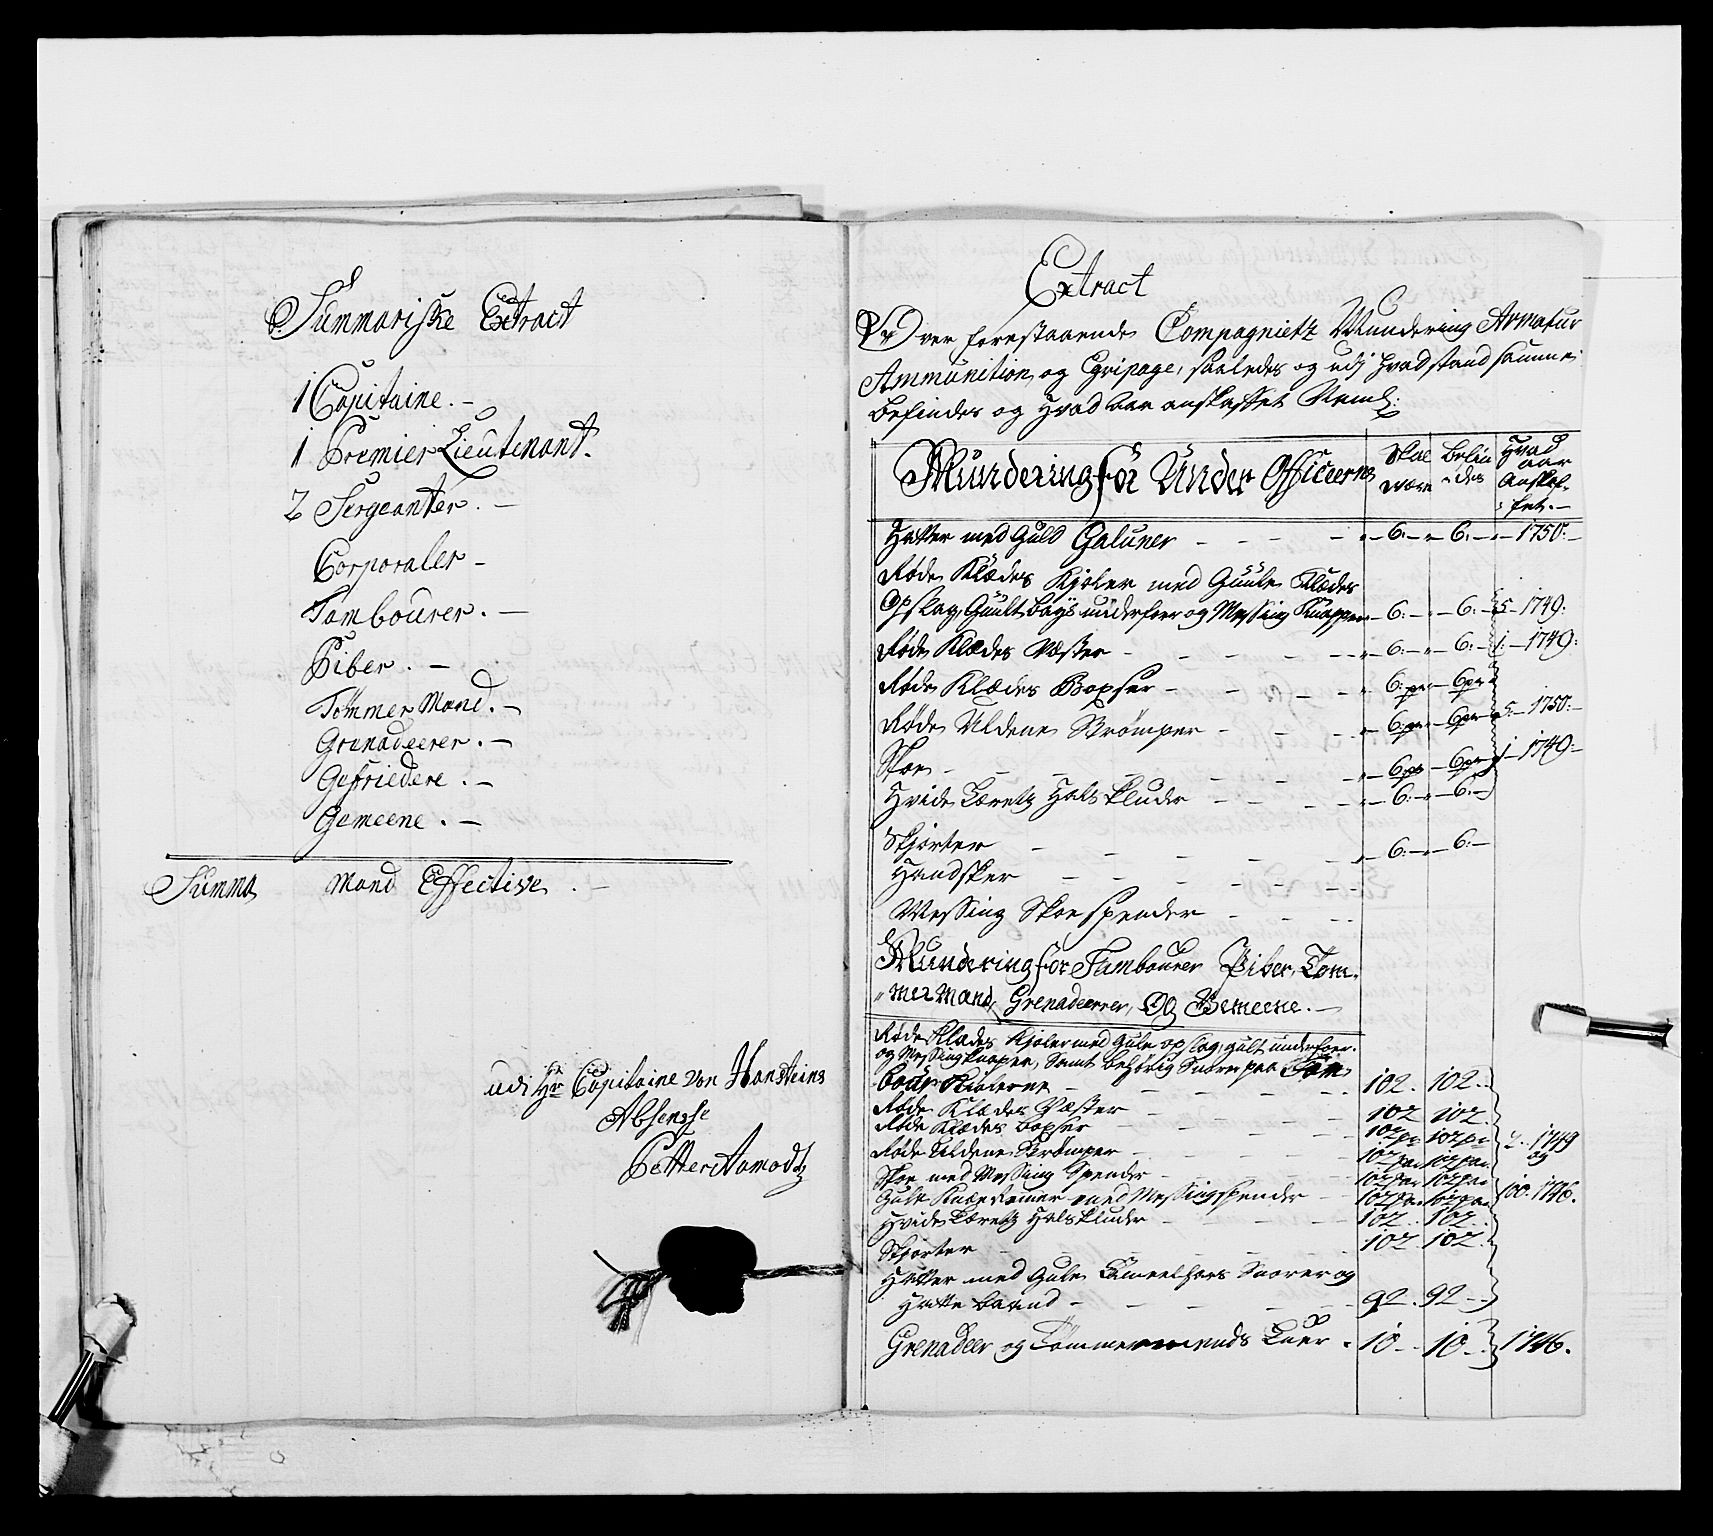 Summariske Extract
1 Capitaine. —
1 Premier Lieutenant.
2 Sergeanter. —
Corporaler —
Tambourer. —
Piber. —
Tømmer Mand. —
Granadeerer. —
Gefriedere. —
Gemeene. —
Summa Mand Effective. —
udi Hr Capitaine Von Hansteins
Absense
Petter Aamodt
Extract
Over forestaaende Compagnietz Mundering Armatur
Ammunition og Eqvipage, saaledes og udj hvad stand samme
befindes og hvad aar anskaffet Neml:
Mundering for Under Officeerne
Skal være
Befindes
Hvad aar Anskaffet. —
Hatter med Guld Galuner — 6: — 6: — 1750: —
Røde Klædes Kjoler med Guule Klædes
Opslag, Guult bays underfoer og Messing Knapper — 6: — 6: — 5 — 1749:
Røde Klædes Væster — 6: — 6: — 1: — 1749:
Røde Klædes Boxser — 6: pr — 6 pr
Røde Uldene Strømper — 6: pr — 6 pr 5: — 1750: —
Skoe — 6 pr — 6 pr 1 — 1749: —
Hvide Lærretz Halskluder — 6: — 6: —
Skjorter — 6: — 6: —
Handsker —
Messing Skoespender —
Mundering for Tambourer Piber, Tøm-
mermand, Grenadeerer, Og Gemeene. —
Røde Klædes Kjoler med Gule opslag, gult underfoer
og Messing knaper, Samt behørig Snore paa Tam
bour Kiolerne — 102. 102. —
Røde Klædes Væster — 102 102.
Røde Klædes boxser — 102 pr 102 pr
Røde Uldene Strømper — 102 par 102 par 2. 1749
og
Skoe med Messing Spender — 102 par 102 par
Gule Knæe Remer med Messingspender — 102 par 102 par 100. 1746.
Hvide Lærretz Halskluder — 102. 102.
Skjorter — 102 102.
Hatter med Gule Cameelhaars Snorer og
Hatte baand — 92. 92. —
Grenadeer og Tømmermends Luer. 10 — 10 — 1746.